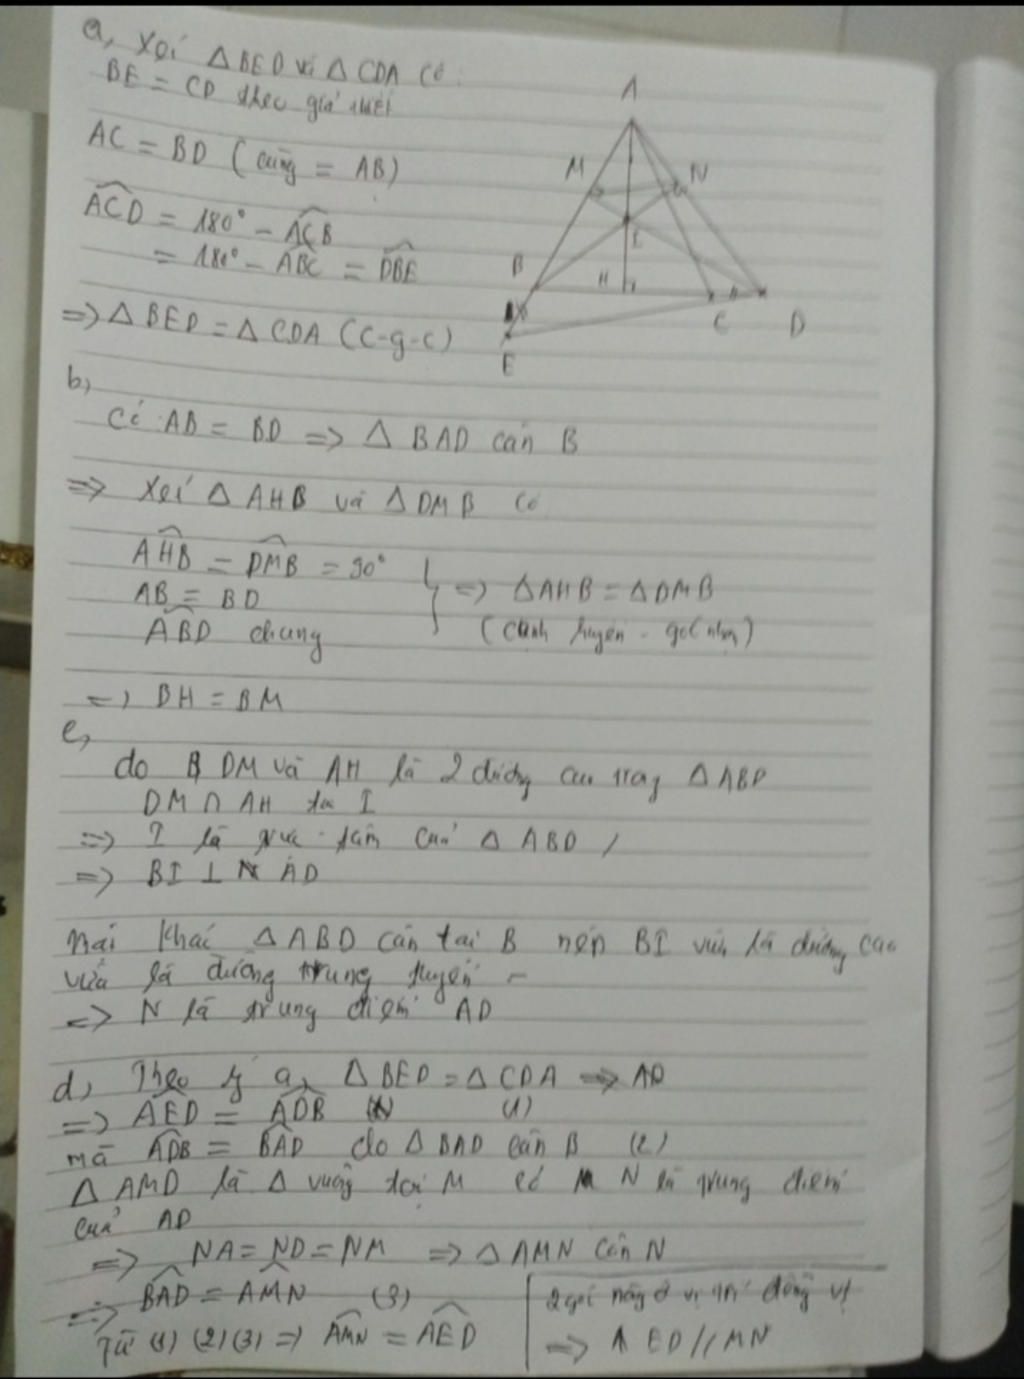 a, Xét △BED và △CDA có
BE = CD theo giả thiết
AC = BD (cùng = AB)
ACD = 180° - ACB
= 180° - ABC = DBE
=> △BED = △CDA (c-g-c)
A
M
N
I
B
H
C
D
E
b,
Có AB = BD => △ BAD cân B
=> Xét △ AHB và △ DMB có
AHB = DMB = 90°
AB = BD
ABD chung
=> △AHB = △DMB
(cạnh huyền - góc nhọn)
=> BH = BM
c,
do DM và AH là 2 đường cao trong △ABD
DM ∩ AH tại I
=> I là trực tâm của △ ABD
=> BI ⊥ AD
Mặt khác △ABD cân tại B nên BI vừa là đường cao
vừa là đường trung tuyến
=> N là trung điểm AD
d, Theo ý a, △BED = △CDA => AD
=> AED = ADB (1)
mà ADB = BAD do △ BAD cân B (2)
△ AMD là △ vuông tại M có N là trung điểm
của AD
=> NA = ND = NM => △ AMN cân N
=> BAD = AMN (3)
Từ (1) (2) (3) => AMN = AED
2 góc này ở vị trí đồng vị
=> ED // MN